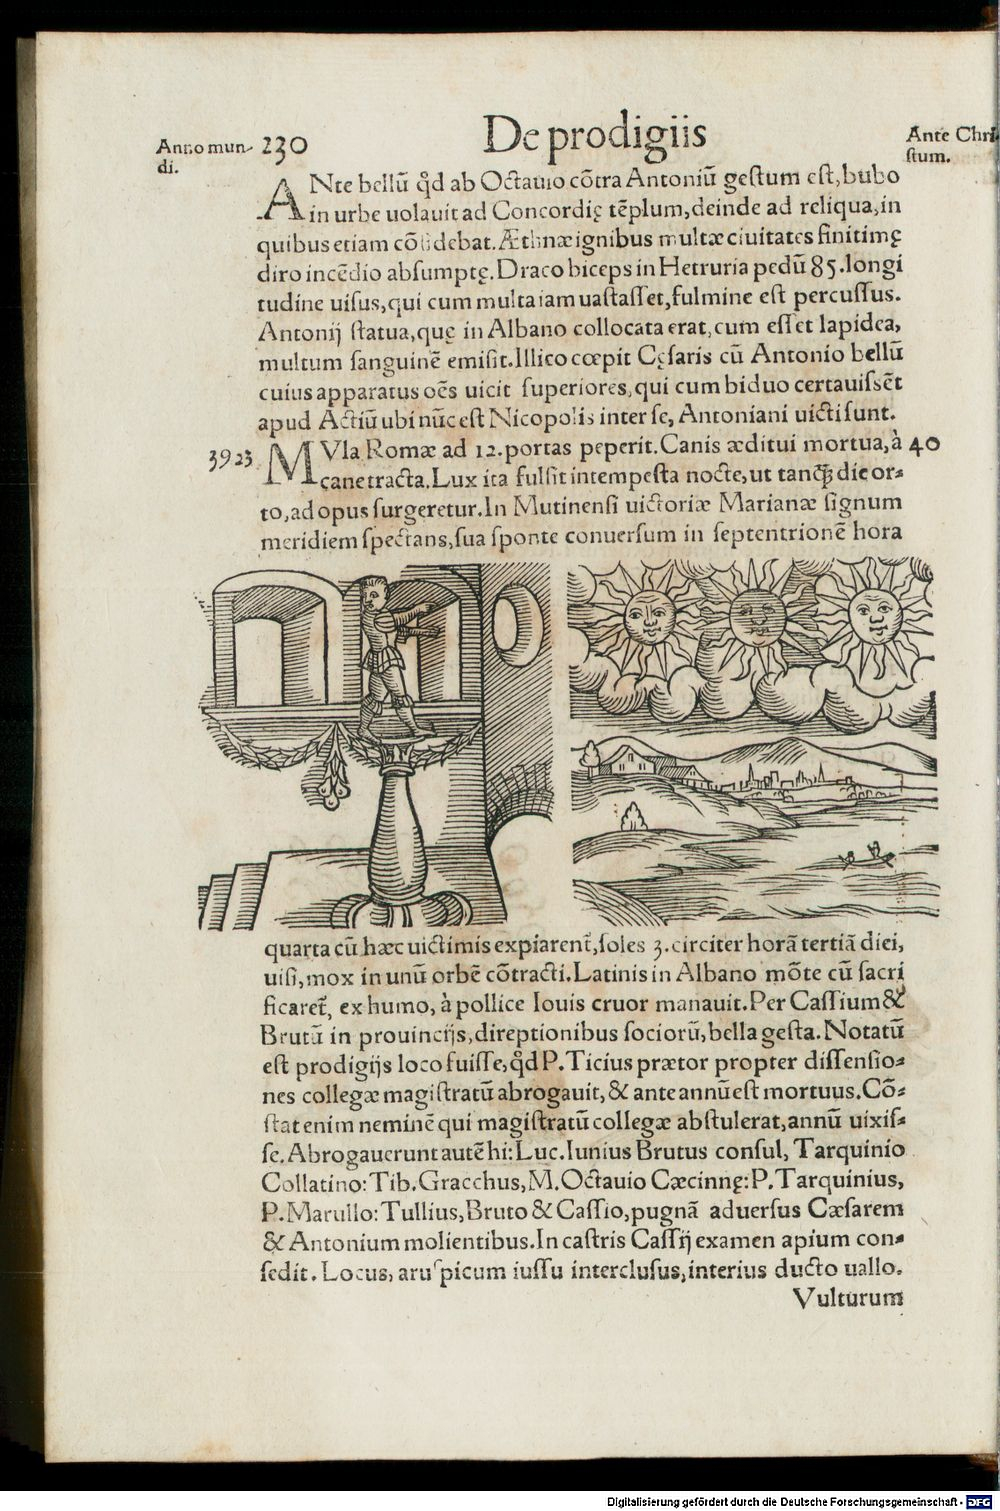 Anno mun-
di.
230
De prodigiis
Ante Chri
stum.
ANte bellũ qđ ab Octauio cõtra Antoniũ gestum est, bubo
in urbe uolauit ad Concordię tẽplum, deinde ad reliqua, in
quibus etiam cõsidebat. Æthnæ ignibus multæ ciuitates finitimę
diro incẽdio absumptę. Draco biceps in Hetruria pedũ 85. longi
tudine uisus, qui cum multa iam uastasset, fulmine est percussus.
Antonij statua, quę in Albano collocata erat, cum esset lapidea,
multum sanguinẽ emisit. Illico cœpit Cęsaris cũ Antonio bellũ
cuius apparatus oẽs uicit superiores, qui cum biduo certauissẽt
apud Actiũ ubi nũc est Nicopolis inter se, Antoniani uicti sunt.
3923
MVla Romæ ad 12. portas peperit. Canis æditui mortua, à
40
cane tracta. Lux ita fulsit intempesta nocte, ut tanꝗ̃ die or-
to, ad opus surgeretur. In Mutinensi uictoriæ Marianæ signum
meridiem spectans, sua sponte conuersum in septentrionẽ hora
quarta cũ hæc uictimis expiarent̃, soles 3. circiter horã tertiã diei,
uisi, mox in unũ orbẽ cõtracti. Latinis in Albano mõte cũ sacri
ficaret̃, ex humo, à pollice Iouis cruor manauit. Per Cassium &
Brutũ in prouincijs, direptionibus sociorũ, bella gesta. Notatũ
est prodigijs loco fuisse, qđ P. Ticius prætor propter dissensio-
nes collegæ magistratũ abrogauit, & ante annũ est mortuus. Cõ-
stat enim neminẽ qui magistratũ collegæ abstulerat, annũ uixis-
se. Abrogauerunt autẽ hi: Luc. Iunius Brutus consul, Tarquinio
Collatino: Tib. Gracchus, M. Octauio Cæcinnę: P. Tarquinius,
P. Marullo: Tullius, Bruto & Cassio, pugnã aduersus Cæsarem
& Antonium molientibus. In castris Cassij examen apium con-
sedit. Locus, aruspicum iussu interclusus, interius ducto uallo.
Vulturum
Digitalisierung gefördert durch die Deutsche Forschungsgemeinschaft - DFG